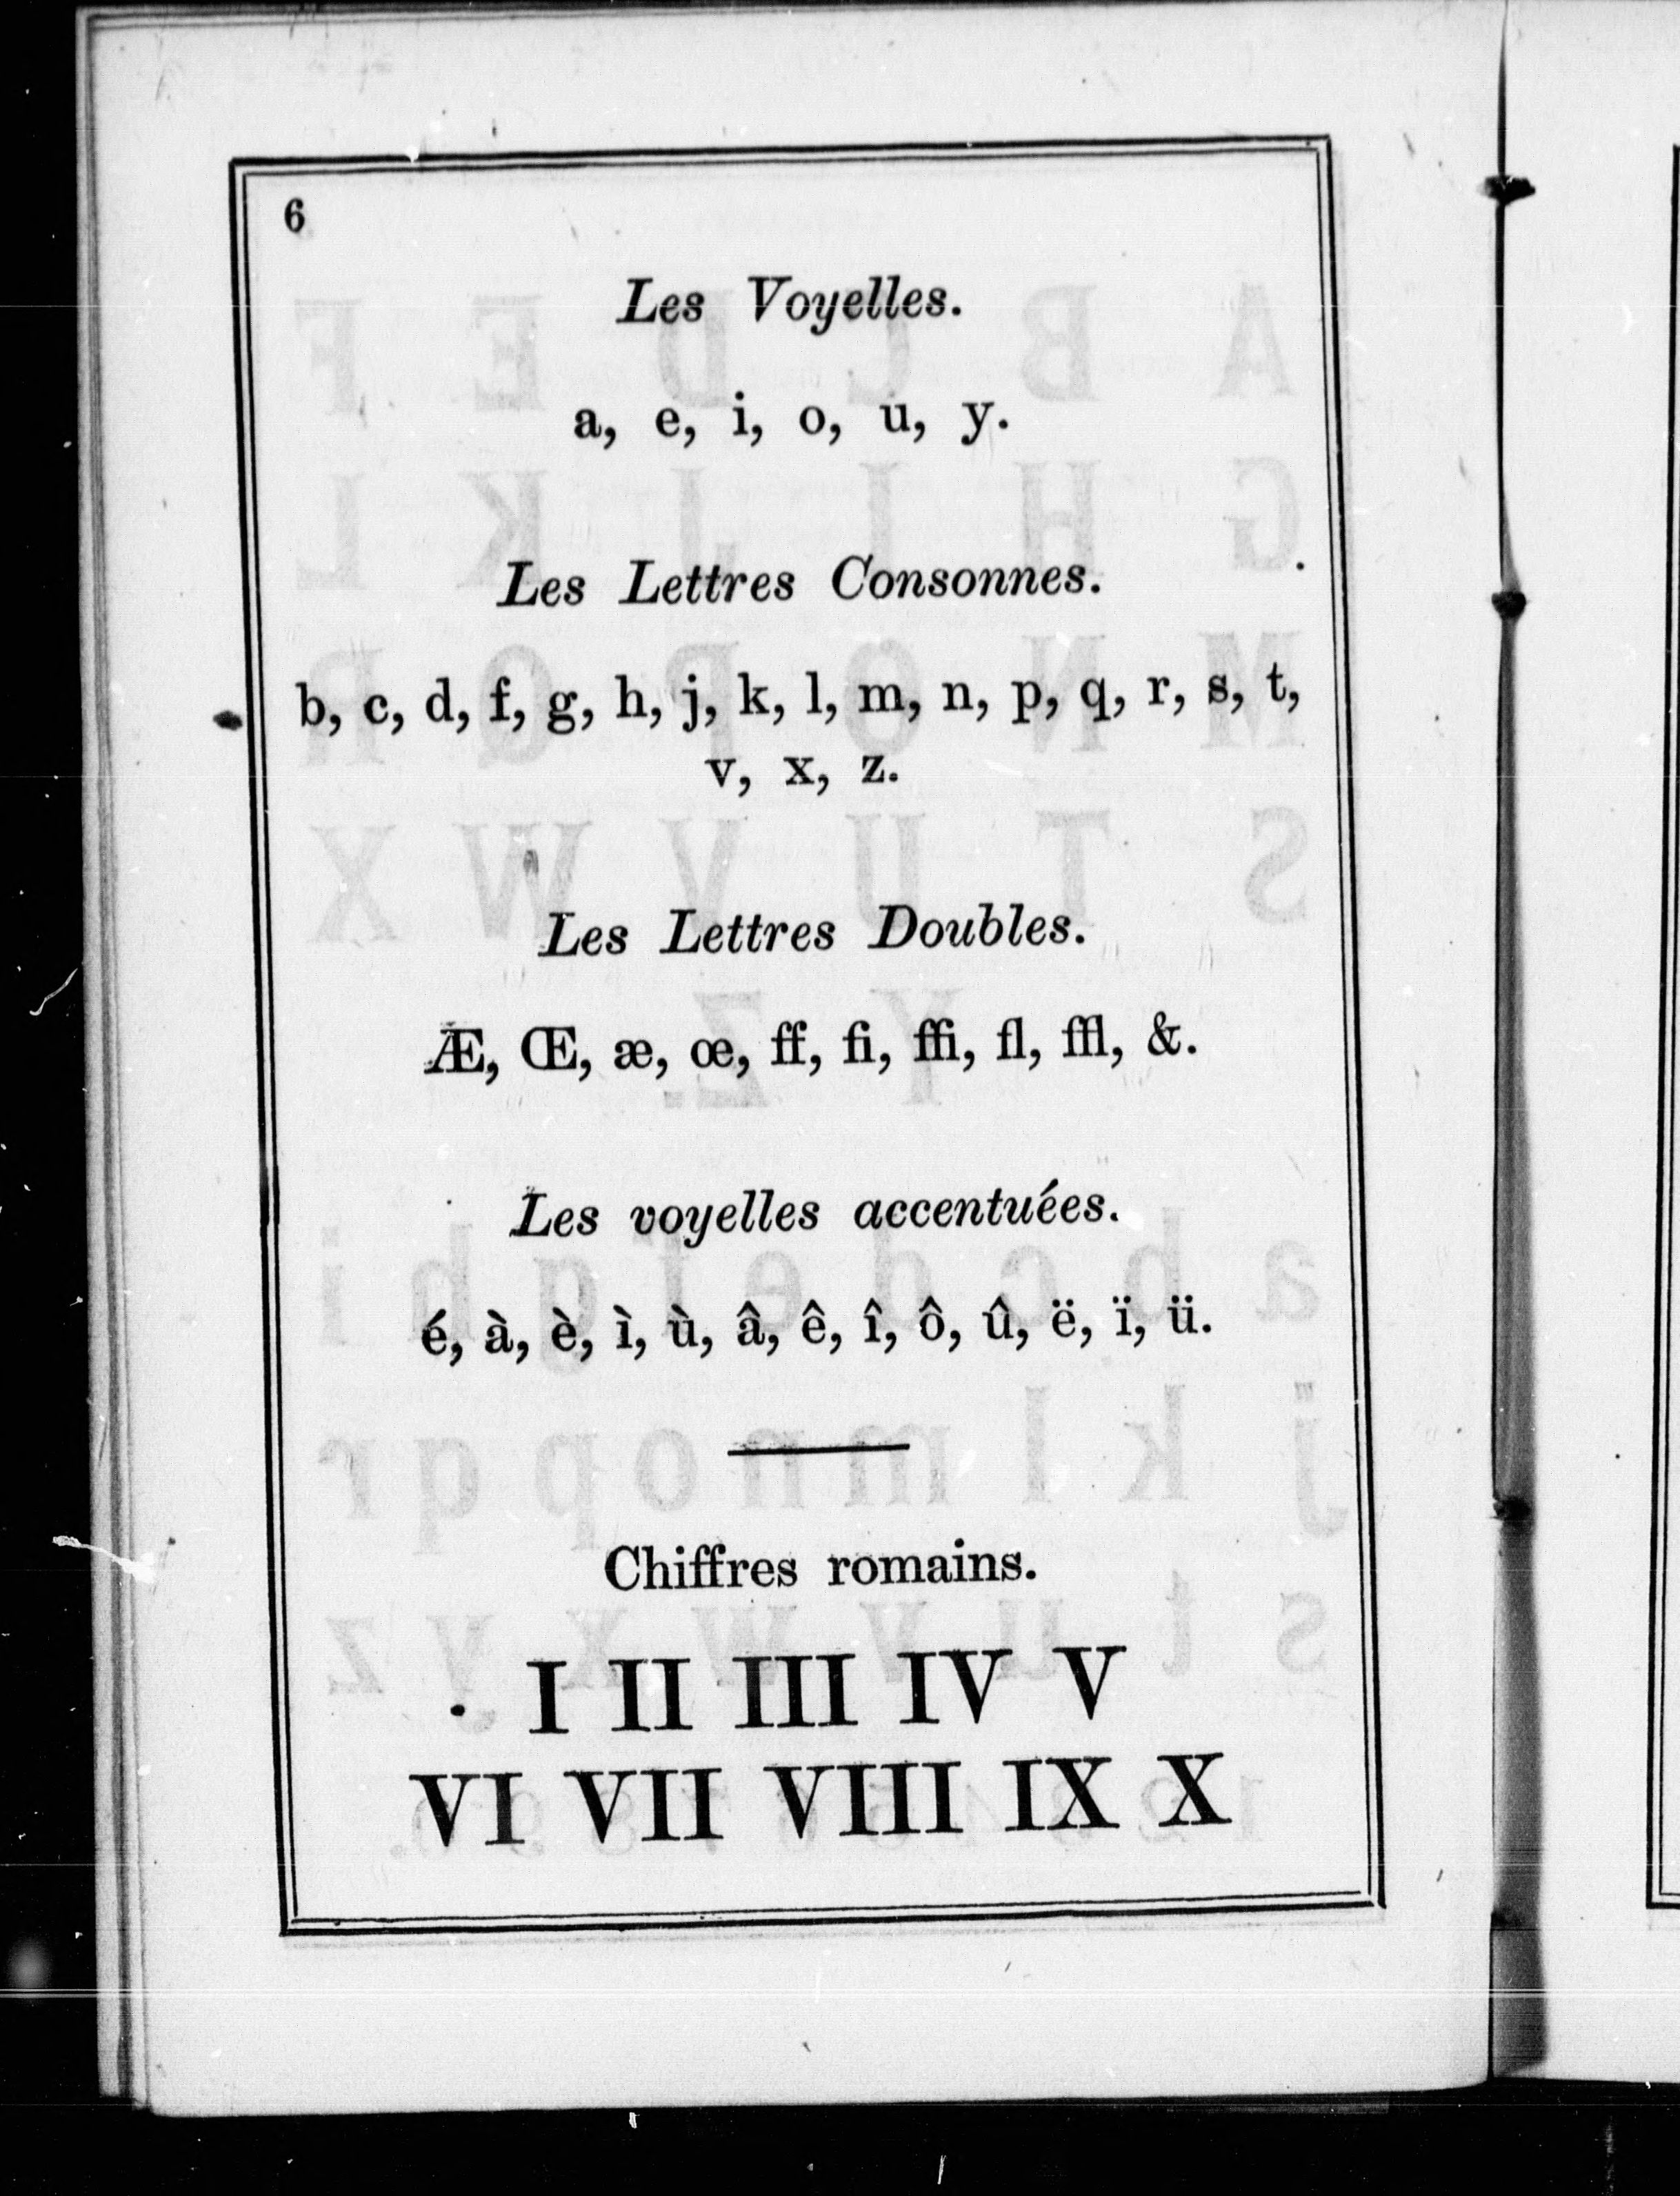 6
Les Voyelles.
a, e, i, o, u, y.
Les Lettres Consonnes.
b, c, d, f, g, h, j, k, l, m, n, p, q, r, s, t,
v, x, z.
Les Lettres Doubles.
Æ, Œ, æ, œ, ff, fi, ffi, fl, ffl, &.
Les voyelles accentuées.
é, à, è, ì, ù, â, ê, î, ô, û, ë, ï, ü.
Chiffres romains.
I II III IV V
VI VII VIII IX X